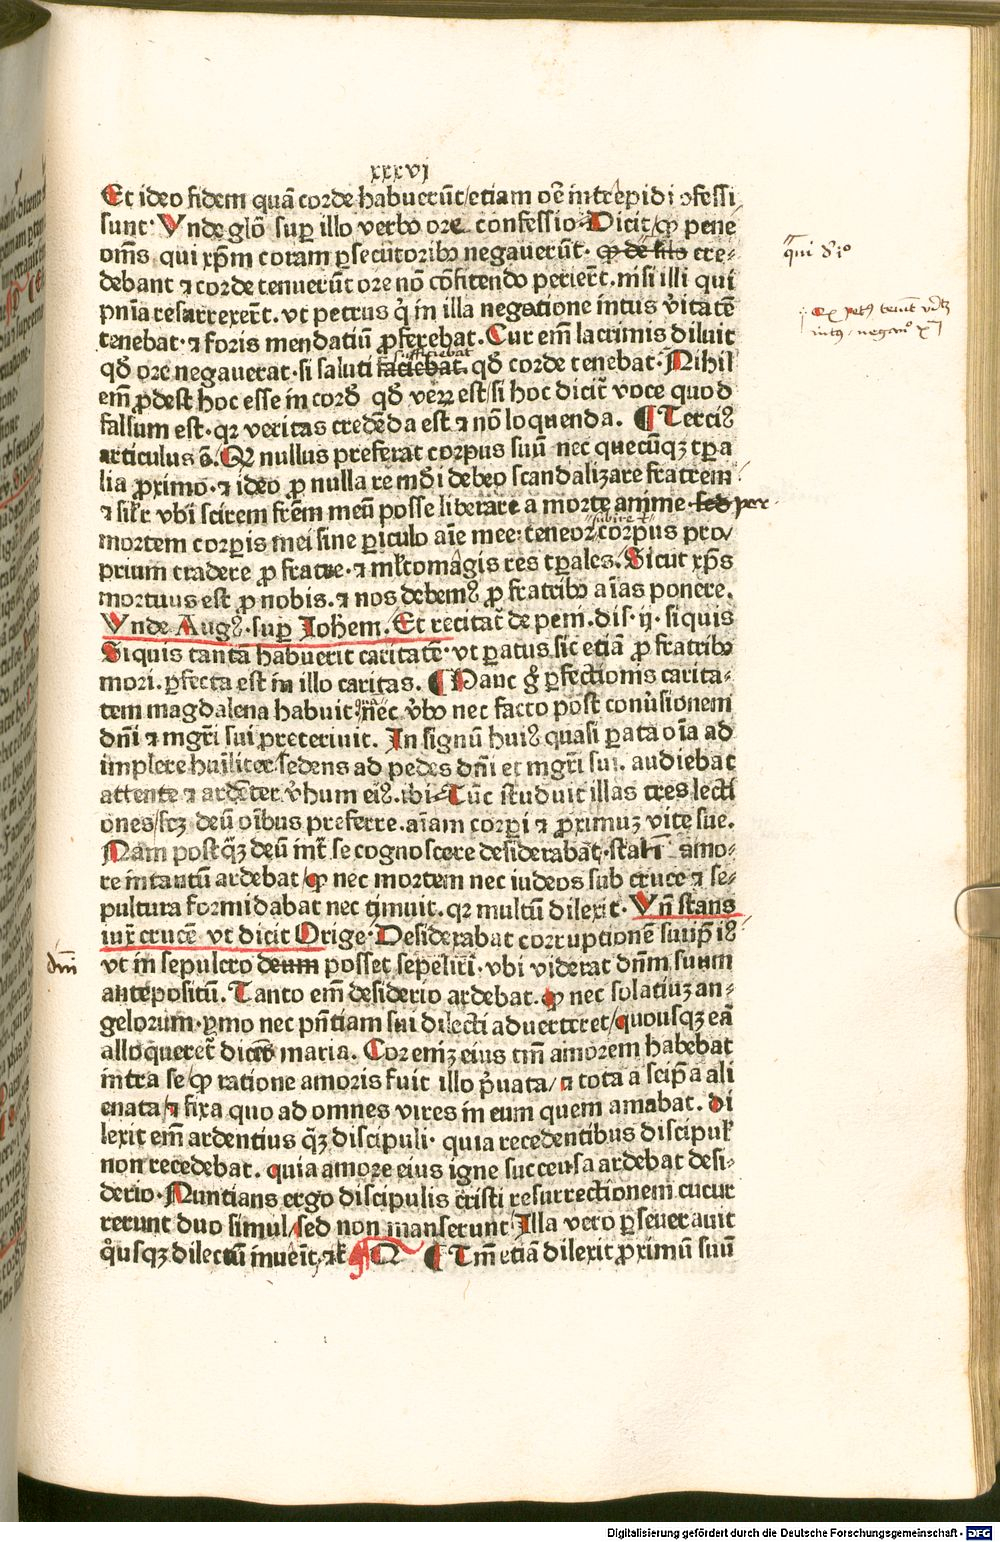 xxxvj
Et ideo fidem quā corde habuerūt/etiam oē intrepidi ↄfessi
sunt· Vnde glō sup̱ illo verbo ore confessio· Dicit/ꝙ pene
om̄s qui xp̄m coram ꝑsecutoribꝰ negauerūt· ꝙ de kīts cre⸗
debant ⁊ corde tenuerūt ore nō cōfitendo perierūt. nisi illi qui
pn̄ia resurrexert̄. vt petrus q̇ in illa negatione intus v̇itatē
tenebat·⁊ foris mendatiū ꝓferebat. Cur em̄ lacrimis diluit
qđ ore negauerat·si saluti faciebat· qđ corde tenebat· Nihil
sufficiebat
em̄ ꝓdest hoc esse in corđ qđ veꝝ est/si hoc dicit̄ voce quod
falsum est·qꝛ veritas credēda est ⁊ nō loquenda. ¶ Terciꝰ
articulus ē. Qꝛ nullus preferat corpus suū nec quecūqꝫ tꝑa
lia ꝓximo·⁊ ideo ꝓ nulla re mūdi debeo scandalizare fratrem
⁊ silr̄ vbi scirem frēm meū posse liberare a morte anime· sed per
mortem corꝑis mei sine ꝑiculo aīe mee: teneor corpus pro/
subire ⁊
prium tradere ꝓ fratre·⁊ mĺtomagis res tꝑales. Sicut xp̄s
mortuus est ꝓ nobis.⁊ nos debemꝰ ꝓ fratribꝰ aīas ponere.
Vnde Augꝰ·suꝑ Iohem̄. Et recitat̄ de peni·dis·ij· si quis
Siquis tantā habuerit caritatē·vt ꝑatus sic etiā ꝓ fratribꝰ
mori.ꝑfecta est in illo caritas. ¶ Hanc g̊ ꝑfectionis carita⸗
tem magdalena habuit: nec v̇bo nec facto post conūsionem
dn̄i ⁊ mgr̄i sui preteriuit. In signū huiꝰ quasi ꝑata oīa ad
implere hūiliter/sedens ad pedes dn̄i et mgr̄i sui. audiebat
attente ⁊ ardēter v̇bum eiꝰ.ibi· Tūc studuit illas tres lecti
ones/scꝫ deū oībus preferre.aīam corꝑi ⁊ ꝓximuꝫ vite sue.
Nam postqꝫ deū int̄ se cognoscere desiderabat·stati amo⸗
re intantū ardebat/ꝙ nec mortem nec iudeos sub cruce ⁊ se⸗
pultura formidabat nec timuit.qꝛ multū dilexit· Vn̄ stans
iux̄ crucē vt dicit Orige· Desiderabat corruptionē suiip̄iꝰ
dn̄i
vt in sepulcro deum posset sepeliri·vbi viderat dn̄m suum
antepositū. Tanto em̄ desiderio ardebat. ꝙ nec solatiuꝫ an⸗
gelorum·ꝑmo nec pn̄tiam sui dilecti aduerteret/quousqꝫ eā
alloqueret̄ dicēs maria. Cor enimꝫ eius tm̄ amorem habebat
intra se/ꝙ ratione amoris fuit illo ṗuata/⁊ tota a seip̄a ali
enata/⁊ fixa quo ad omnes vires in eum quem amabat. di
lexit em̄ ardentius qꝫ discipuli· quia recedentibus discipul̄
non recedebat. quia amore eius igne succensa ardebat desi⸗
derio· Nuntians ergo discipulis cristi resurrectionem cucur
rerunt duo simul/sed non manserunt/ Illa vero ꝑseuerauit
q̊usqꝫ dilectū inuēit/⁊k̄ Q ¶ Tm̄ etiā dilexit ꝓximū suū